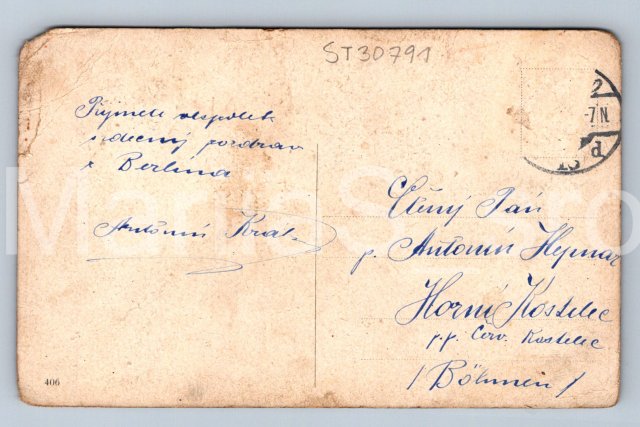 ST30791
Přijměte vespolek
srdečný pozdrav
z Berlína
Antonín Král
Ctěný Pán
p. Antonín Hejnar
Horní Kostelec
p.p. Červ. Kostelec
/ Böhmen /
406
-7N.